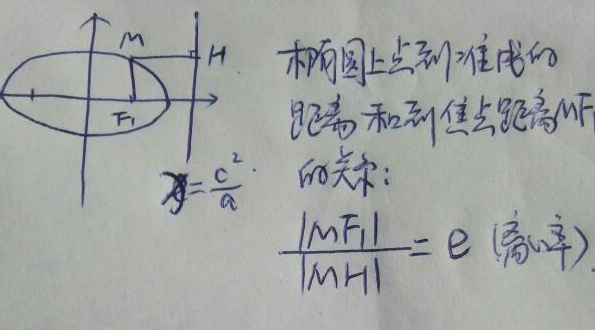 M
H
F₁
x=c²/a
椭圆上点到准线的
距离和到焦点距离MF₁
的关系:
|MF₁|/|MH| = e (离心率)